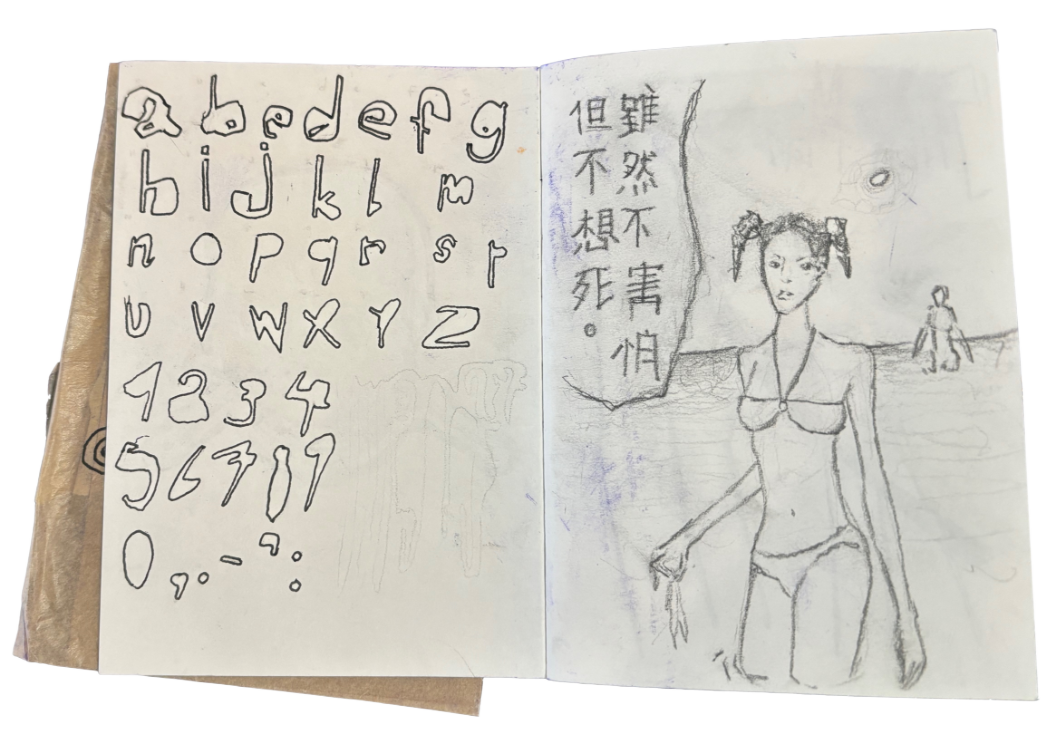 a b c d e f g
h i j k l m
n o p q r s t
u v w x y z
1 2 3 4
5 6 7 8 9
0 , . - ? :
雖然不害怕
但不想死。